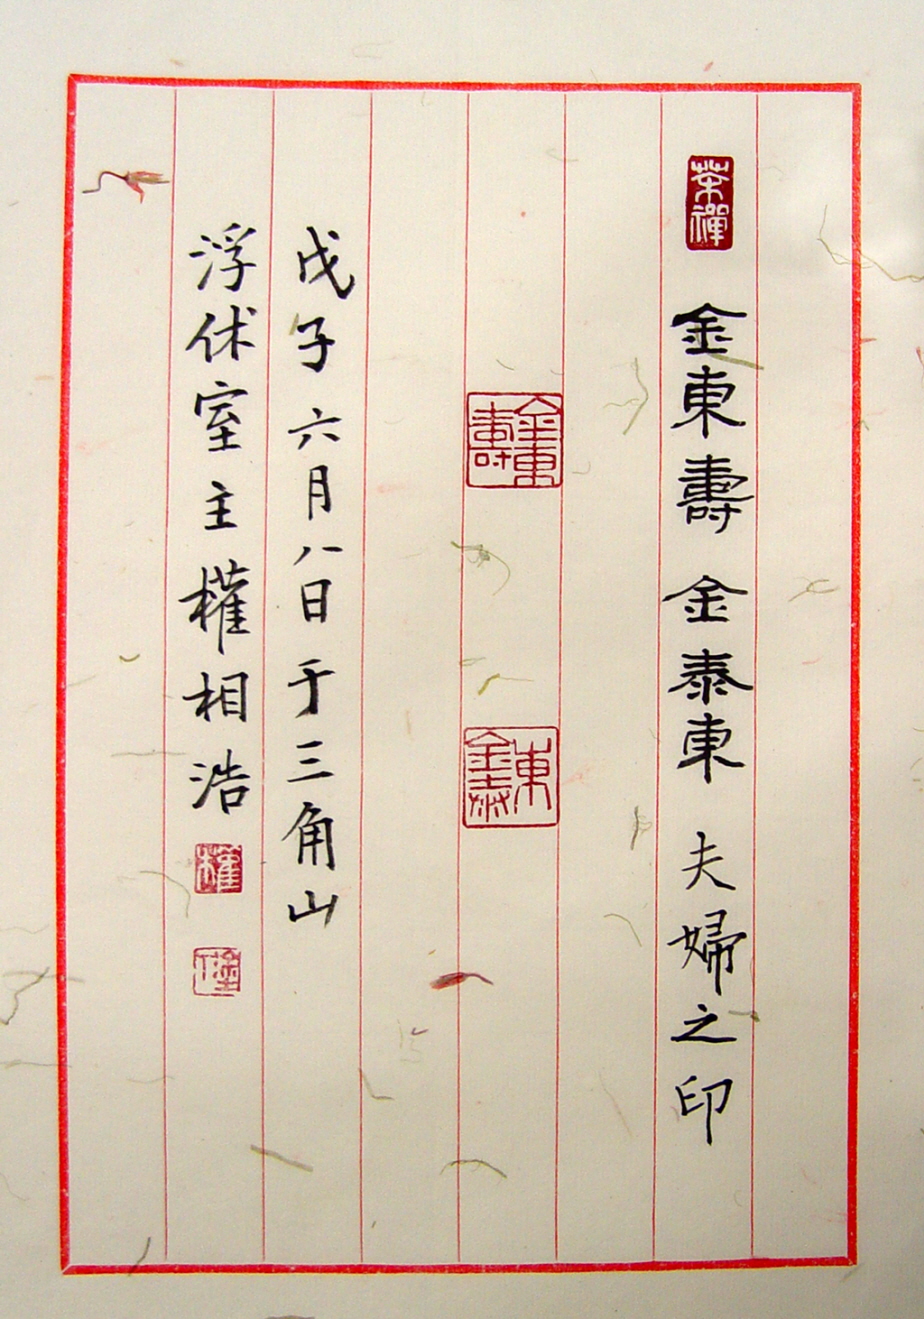 茶禪
金東壽 金泰東 夫婦之印
金東壽
東金泰
戊子 六月 八日 于 三角山
浮休室主 權相浩
權